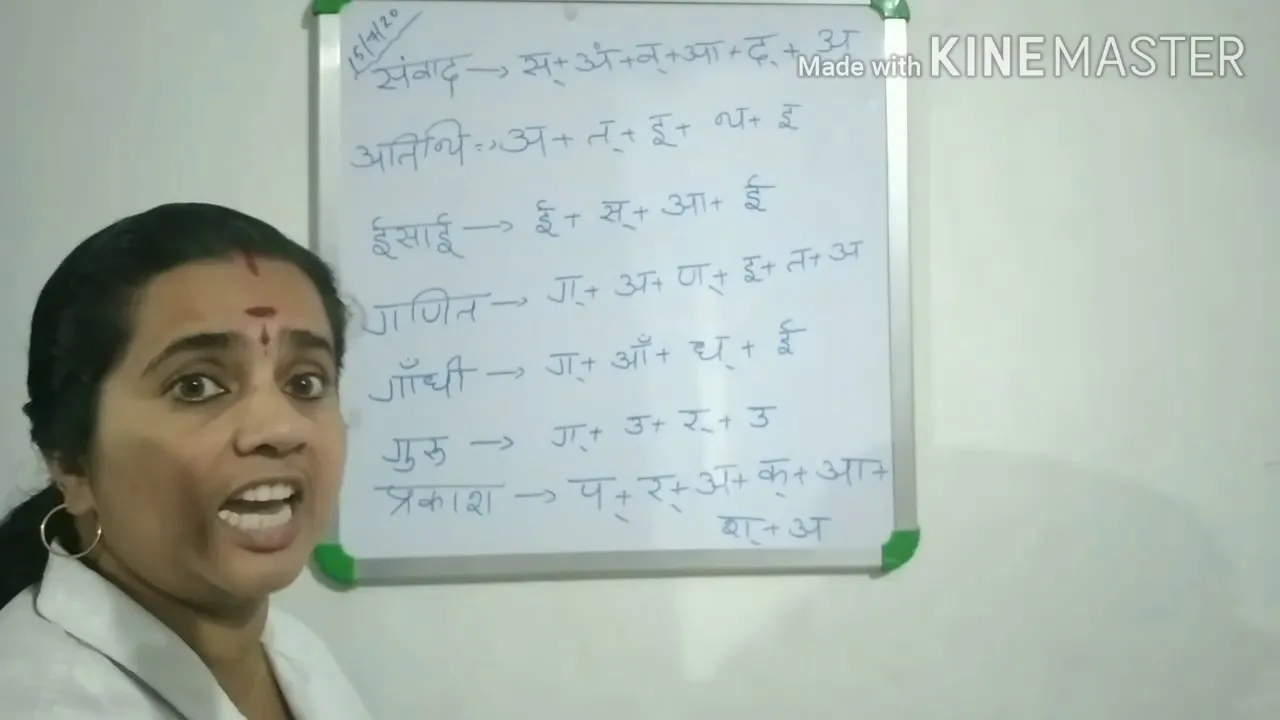 15/7/20
Made with KINEMASTER
संवाद → स्+अं+व्+आ+द्+अ
अतिथि → अ+त्+इ+थ+इ
ईसाई → ई+स्+आ+ई
गणित → ग्+अ+ण्+इ+त+अ
गाँधी → ग्+आँ+ध्+ई
गुरु → ग्+उ+र्+उ
प्रकाश → प्+र्+अ+क्+आ+
श्+अ